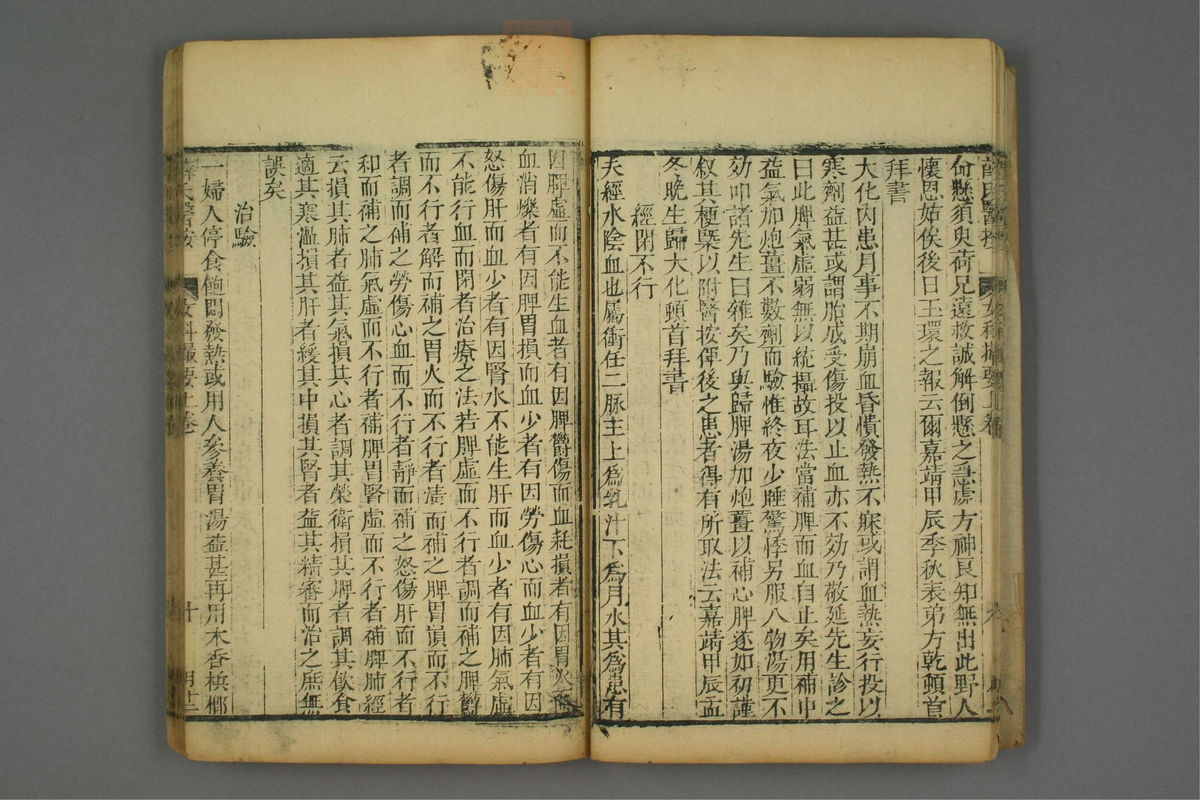 薛氏醫按 女科撮要上卷
倚懸須臾荷兄遠救誠解倒懸之急處方神良知無出此野人
懷恩姑俟後日玉環之報云爾嘉靖甲辰季秋表弟方乾頓首
拜書
大化內患月事不期崩血昏憒發熱不寐或謂血熱妄行投以
寒劑益甚或謂胎成受傷投以止血亦不効乃敬延先生診之
曰此脾氣虛弱無以統攝故耳法當補脾而血自止矣用補中
益氣加炮薑不數劑而驗惟終夜少睡驚悸另服八物湯更不
効叩諸先生曰雜矣乃與歸脾湯加炮薑以補心脾遂如初謹
叙其梗槩以附醫按俾後之患者得有所取法云嘉靖甲辰孟
冬晚生歸大化頓首拜書
經閉不行
夫經水陰血也屬衝任二脉主上爲乳汁下爲月水其爲患有
因脾虛而不能生血者有因脾鬱傷而血耗損者有因胃火而
血消爍者有因脾胃損而血少者有因勞傷心而血少者有因
怒傷肝而血少者有因腎水不能生肝而血少者有因肺氣虛
不能行血而閉者治療之法若脾虛而不行者調而補之脾鬱
而不行者解而補之胃火而不行者清而補之脾胃損而不行
者調而補之勞傷心血而不行者靜而補之怒傷肝而不行者
和而補之肺氣虛而不行者補脾胃腎虛而不行者補脾肺經
云損其肺者益其氣損其心者調其榮衛損其脾者調其飲食
適其寒溫損其肝者緩其中損其腎者益其精審而治之庶無
誤矣
治驗
一婦人停食飽悶發熱或用人參養胃湯益甚再用木香檳榔
薛氏醫按 女科撮要上卷 十